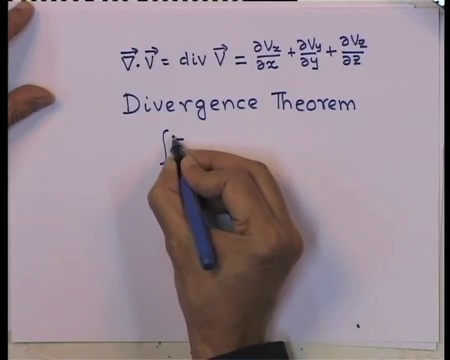 ∇⃗.V⃗ = div V⃗ = ∂Vx/∂x + ∂Vy/∂y + ∂Vz/∂z
Divergence Theorem
∫